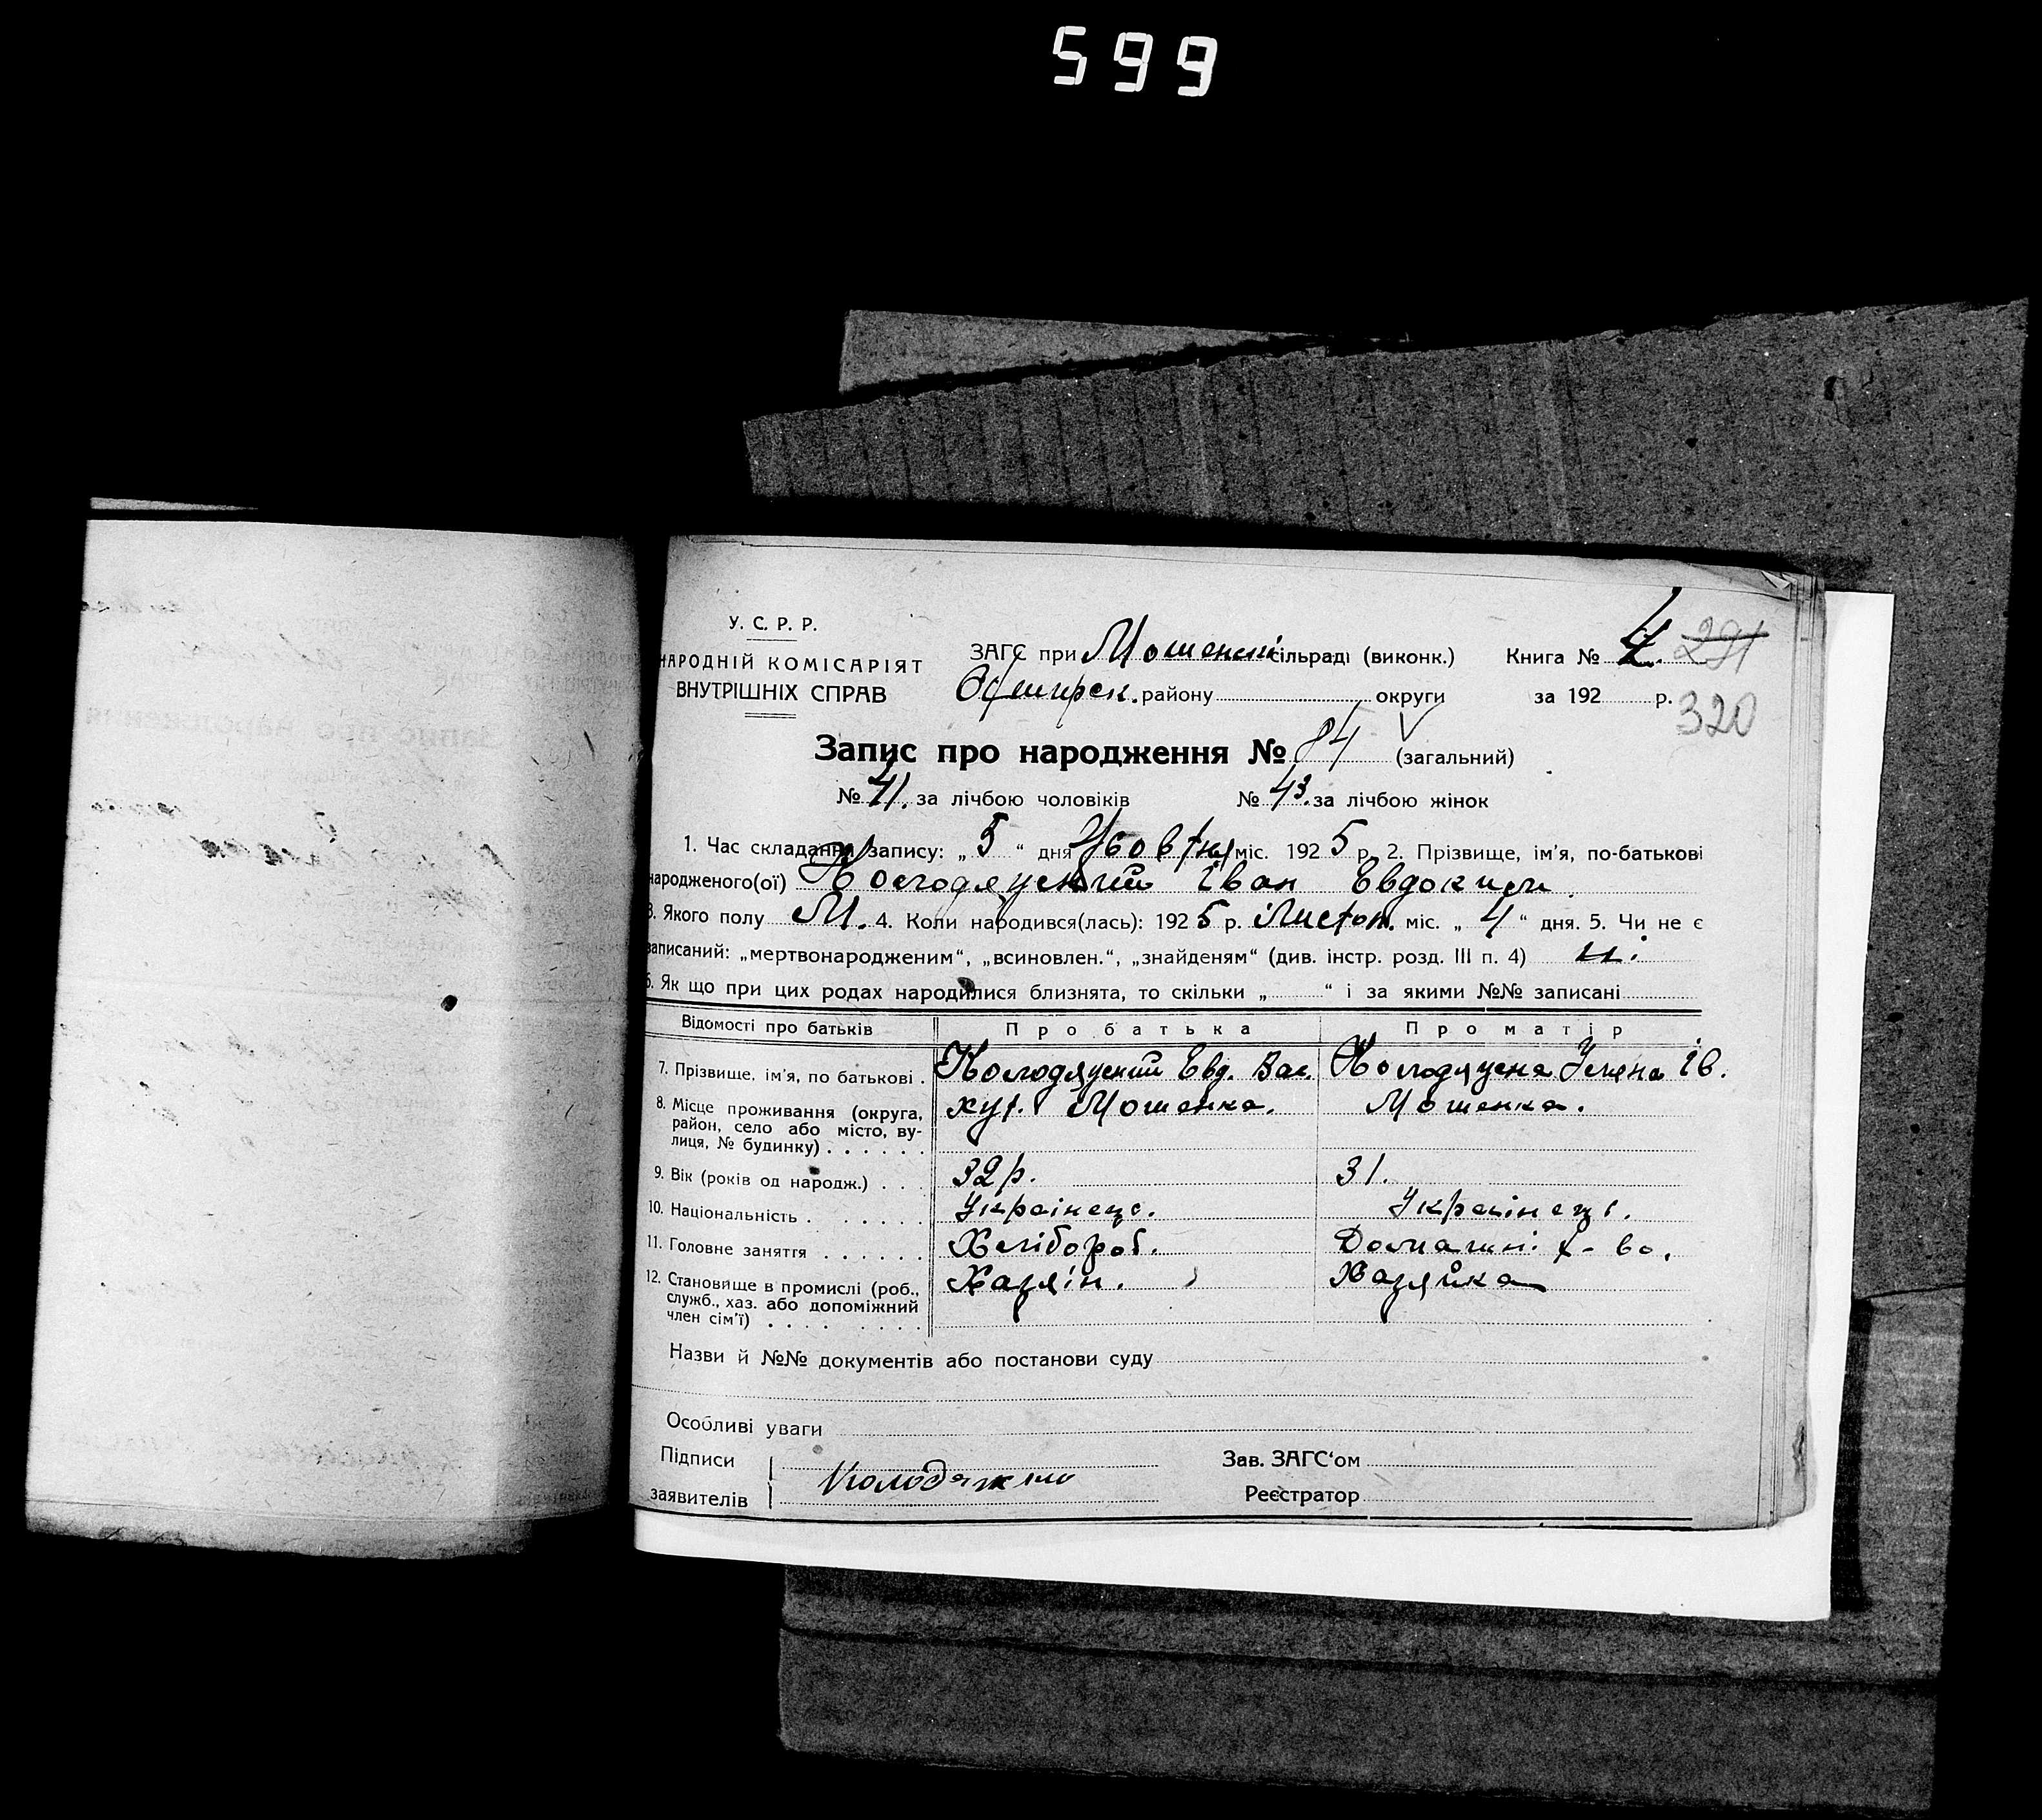 599
У. С. Р. Р.
НАРОДНІЙ КОМІСАРІЯТ
ВНУТРІШНІХ СПРАВ
ЗАГС при Мошенськ сільраді (виконк.) Книга № 4. 291
району округи за 192 р. 320
Запис про народження № 84 (загальний)
№ 41. за лічбою чоловіків № 43. за лічбою жінок
1. Час складання запису: „ 5 “ дня Жовтня міс. 192 5 р. 2. Прізвище, ім'я, по-батькові
народженого(ої) Іван Евдоким
3. Якого полу М. 4. Коли народився(лась): 192 5 р. Листоп. міс. „ 4 “ дня. 5. Чи не є
записаний: „мертвонародженим“, „всиновлен.“, „знайденям“ (див. інстр. розд. III п. 4) н.
6. Як що при цих родах народилися близнята, то скільки „ “ і за якими №№ записані
Відомості про батьків Про батька Про матір
7. Прізвище, ім'я, по батькові . Евд. Вас. Ів.
8. Місце проживання (округа, хут. Мошенка. Мошенка.
район, село або місто, ву-
лиця, № будинку) . . . . . .
9. Вік (років од народж.) . . . 32 р. 31.
10. Національність . . . . . . . Українець. Українець.
11. Головне заняття . . . . . . Хлібороб. Домашнє х-во.
12. Становище в промислі (роб., Хазяїн. Хазяйка
служб., хаз. або допоміжний
член сім'ї) . . . . . . . .
Назви й №№ документів або постанови суду
Особливі уваги
Підписи Зав. ЗАГС‘ом
заявителів Реєстратор